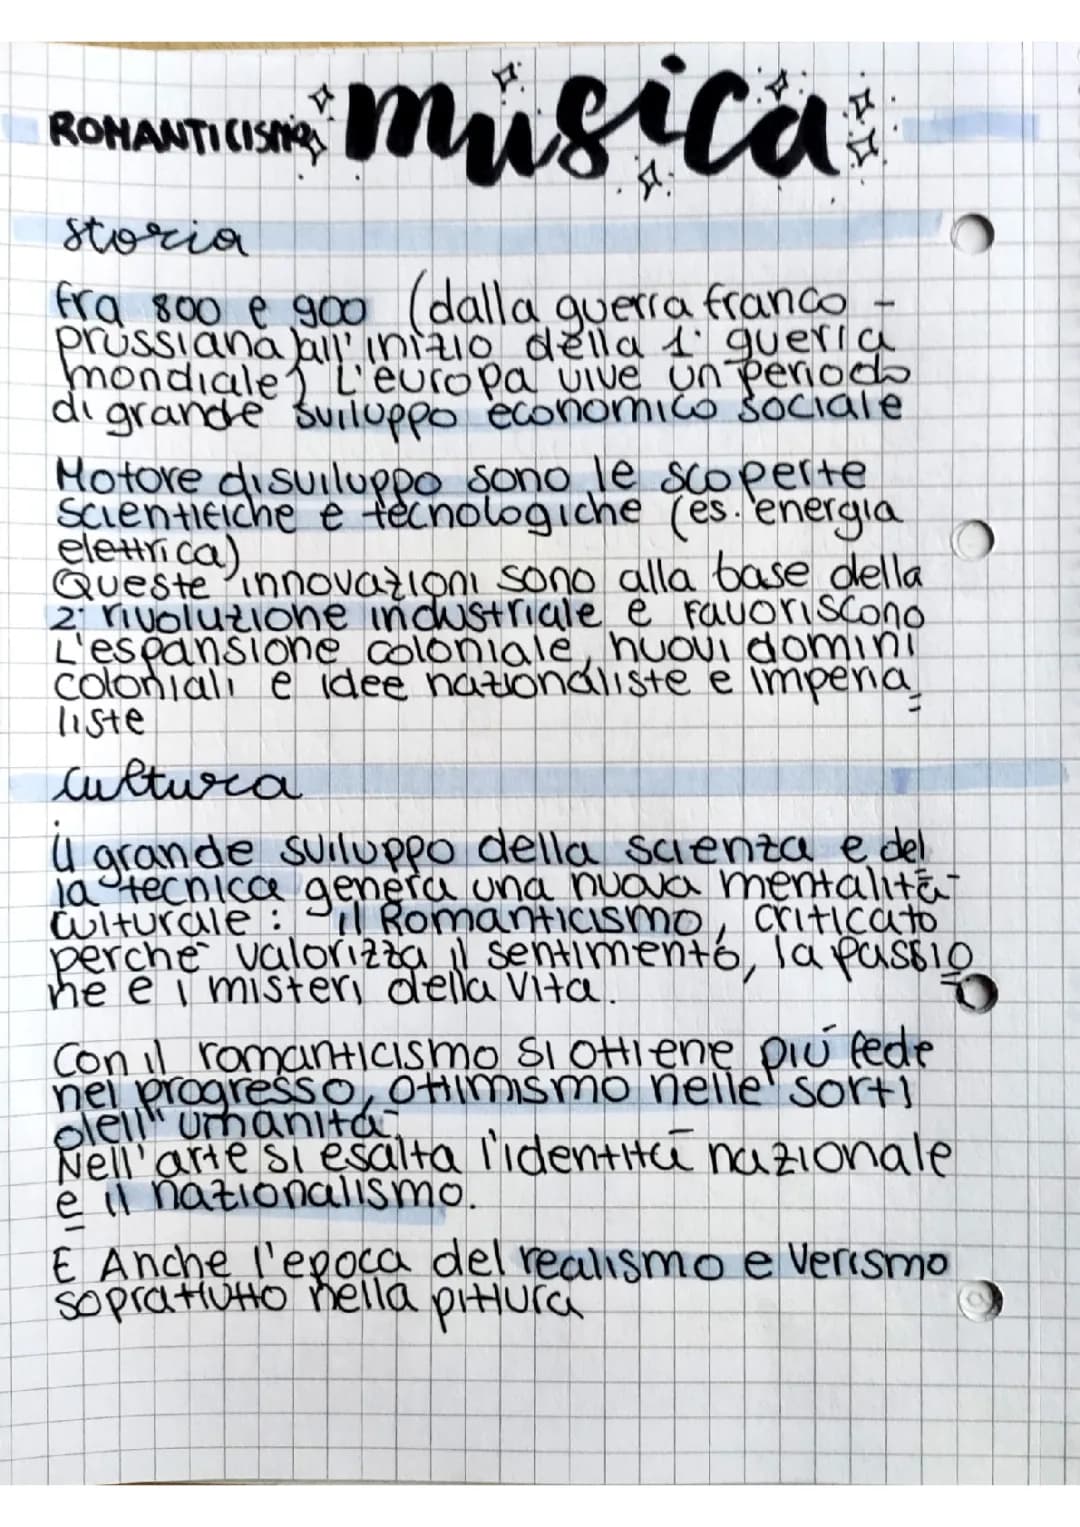 ROMANTICISMO musica
storia
fra 800 e 900 (dalla guerra franco -
prussiana all'inizio della 1° guerra
mondiale) L'europa vive un periodo
di grande sviluppo economico sociale
Motore di sviluppo sono le scoperte
scientifiche e tecnologiche (es. energia
elettrica)
Queste innovazioni sono alla base della
2° rivoluzione industriale e favoriscono
L'espansione coloniale, nuovi domini
coloniali e idee nazionaliste e imperia
liste
cultura
il grande sviluppo della scienza e del
la tecnica genera una nuova mentalità
culturale: il Romanticismo, criticato
perchè valorizza il sentimento, la passio
ne e i misteri della vita.
Con il romanticismo si ottiene più fede
nel progresso, ottimismo nelle sorti
dell'umanità
Nell'arte si esalta l'identità nazionale
e il nazionalismo.
E Anche l'epoca del realismo e verismo
soprattutto nella pittura